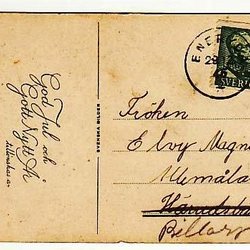 God Jul och
Gott Nytt År
tillönskas av
SVENSKA BILDER
ENE
29
SVERI
Fröken
Elvy Magn
Billar